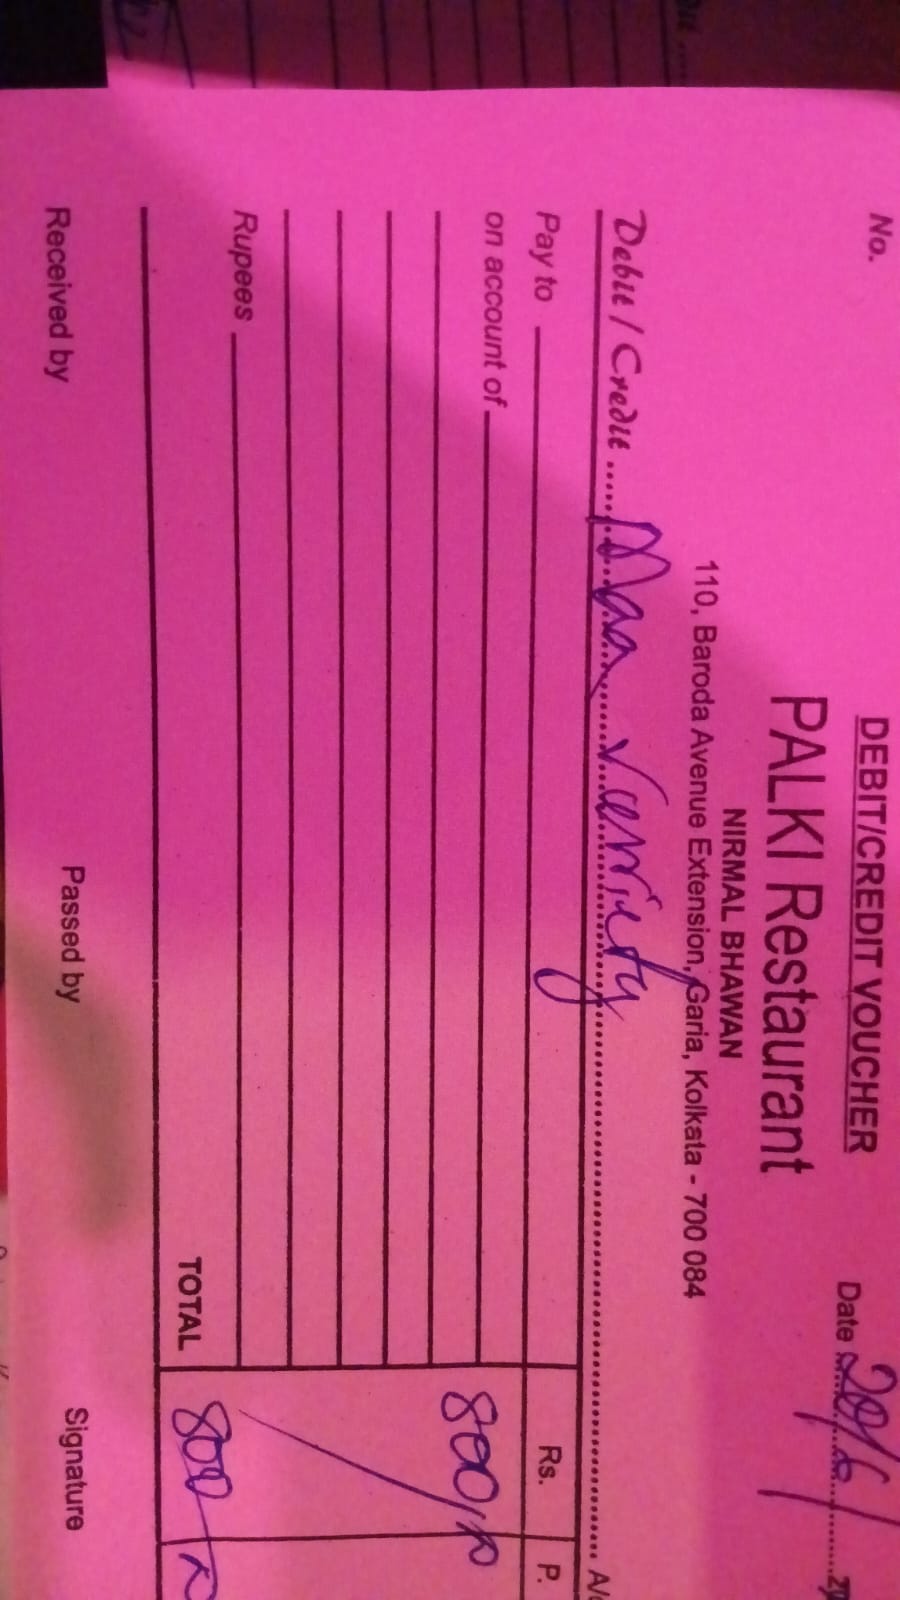 DEBIT/CREDIT VOUCHER
No.
PALKI Restaurant
Date 20/6/
NIRMAL BHAWAN
110, Baroda Avenue Extension, Garia, Kolkata - 700 084
Debit / Credit ........ Maa Verriety ........ A/c
Pay to Rs. P.
on account of 800/
Rupees
TOTAL 800/
Received by Passed by Signature